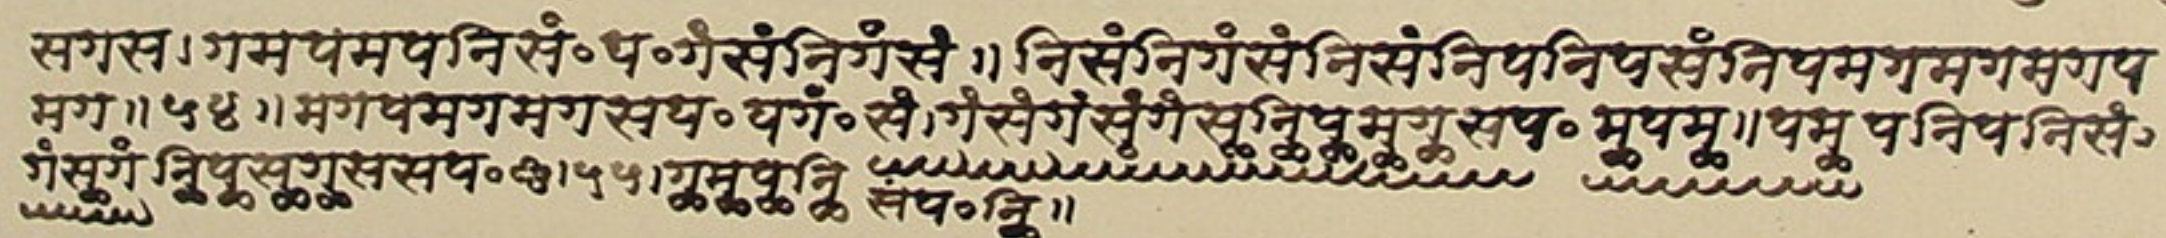 सगस।गमपमपनिसं॰प॰गंसंनिगंसं॥निसंनिगंसंनिसंनिपनिपसंनिपमगमगमगप
मग॥५४॥मगपमगमगसप॰पगं॰सं।गंसंगंसूंगंसूनिूपूमूगूसप॰मूपमू॥पमूपनिपनिसं॰
गंसूगंनिूपूसूगूससप॰।५५।गूमूपूनिू
संप॰निू॥